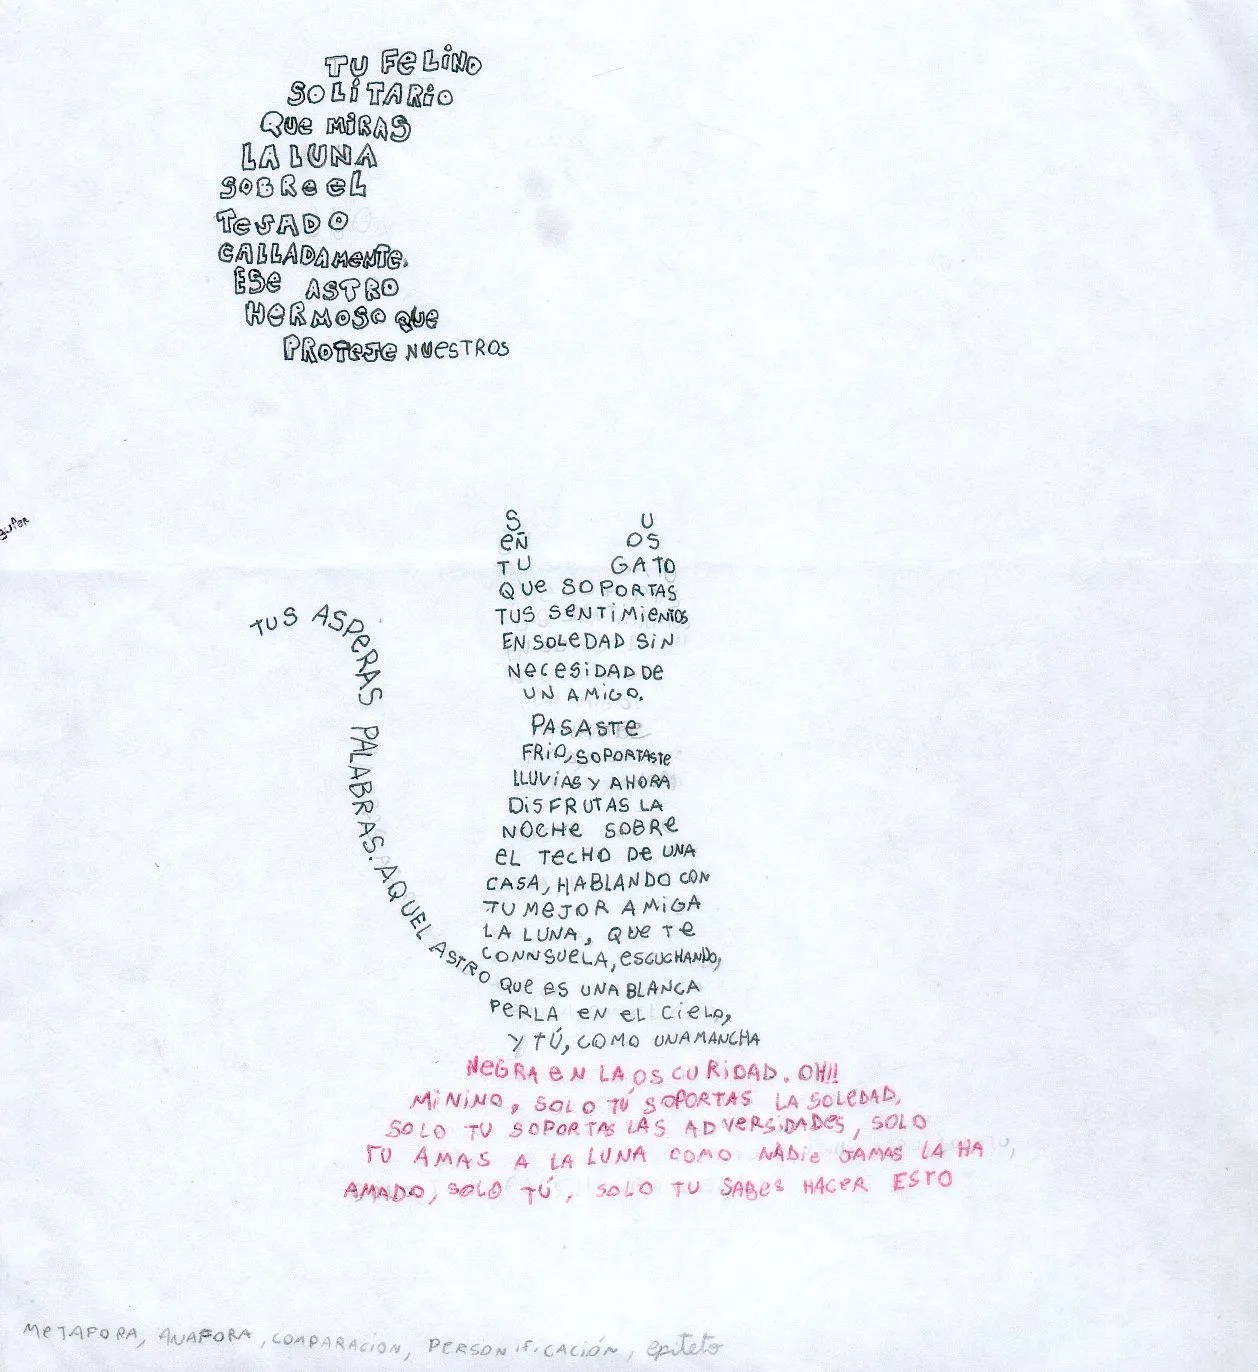 TU FELINO
SOLÍTARIO
QUE MIRAS
LA LUNA
SOBRE EL
TEJADO
CALLADAMENTE.
ESE ASTRO
HERMOSO QUE
PROTEJE NUESTROS
S U
EÑ OS
TU GATO
QUE SOPORTAS
TUS SENTIMIENTOS
EN SOLEDAD SIN
NECESIDAD DE
UN AMIGO.
PASASTE
FRIO, SOPORTASTE
LLUVIAS Y AHORA
DISFRUTAS LA
NOCHE SOBRE
EL TECHO DE UNA
CASA, HABLANDO CON
TU MEJOR AMIGA
LA LUNA, QUE TE
CONNSUELA, ESCUCHANDO,
TUS ASPERAS PALABRAS. AQUEL ASTRO
QUE ES UNA BLANCA
PERLA EN EL CIELO,
Y TÚ, COMO UNA MANCHA
NEGRA EN LA OSCURIDAD. OH!!
MININO, SOLO TÚ SOPORTAS LA SOLEDAD,
SOLO TU SOPORTAS LAS ADVERSIDADES, SOLO
TU AMAS A LA LUNA COMO NADIE JAMAS LA HA
AMADO, SOLO TÚ, SOLO TU SABES HACER ESTO
METAFORA, ANAFORA, COMPARACION, PERSONIFICACIÓN, epíteto